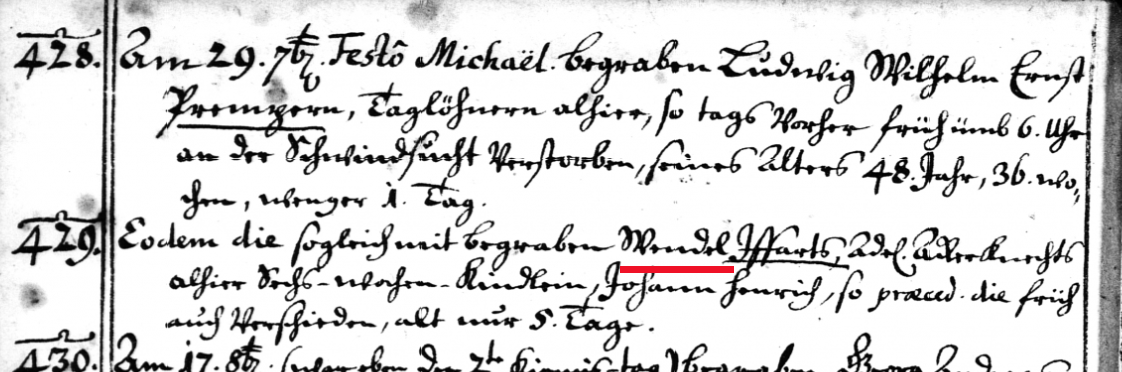 428. Am 29. 7br. Festô Michaël. begraben Ludwig Wilhelm Ernst
Prempern, Taglöhnern alhier, so tags Vorher früh ümb 6. Uhr
an der Schwindsucht Verstorben, seines Alters 48. Jahr, 36. wo,
chen, weniger 1. Tag.
429. Eodem die sogleich mit begraben Wendel Iffarts, Adel. Ackerknechts
alhier Sechs-wochen-Kindlein, Johann Henrich, so præced. die früh
auch Verschieden, alt nur 5. Tage.
430. Am 17. 8br. (war eben der 2te Kirmis-tag) begraben